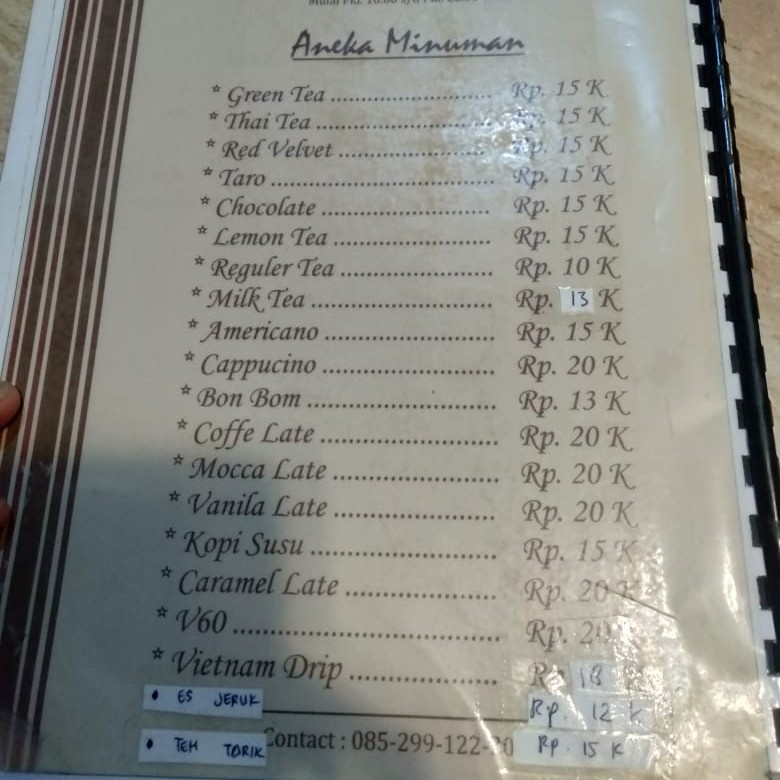 Aneka Minuman
☆ Green Tea .......................... Rp. 15 K
☆ Thai Tea .......................... Rp. 15 K
☆ Red Velvet ....................... Rp. 15 K
☆ Taro ................................... Rp. 15 K
☆ Chocolate .......................... Rp. 15 K
☆ Lemon Tea ....................... Rp. 15 K
☆ Reguler Tea ...................... Rp. 10 K
☆ Milk Tea ........................... Rp. 13 K
☆ Americano ........................ Rp. 15 K
☆ Cappucino ........................ Rp. 20 K
☆ Bon Bom .......................... Rp. 13 K
☆ Coffe Late ......................... Rp. 20 K
☆ Mocca Late ....................... Rp. 20 K
☆ Vanila Late ....................... Rp. 20 K
☆ Kopi Susu .......................... Rp. 15 K
☆ Caramel Late ..................... Rp. 20 K
☆ V60 .................................... Rp. 20
☆ Vietnam Drip .................... 18
• ES JERUK Rp. 12 K
• TEH TARIK Contact : 085-299-122- Rp. 15 K